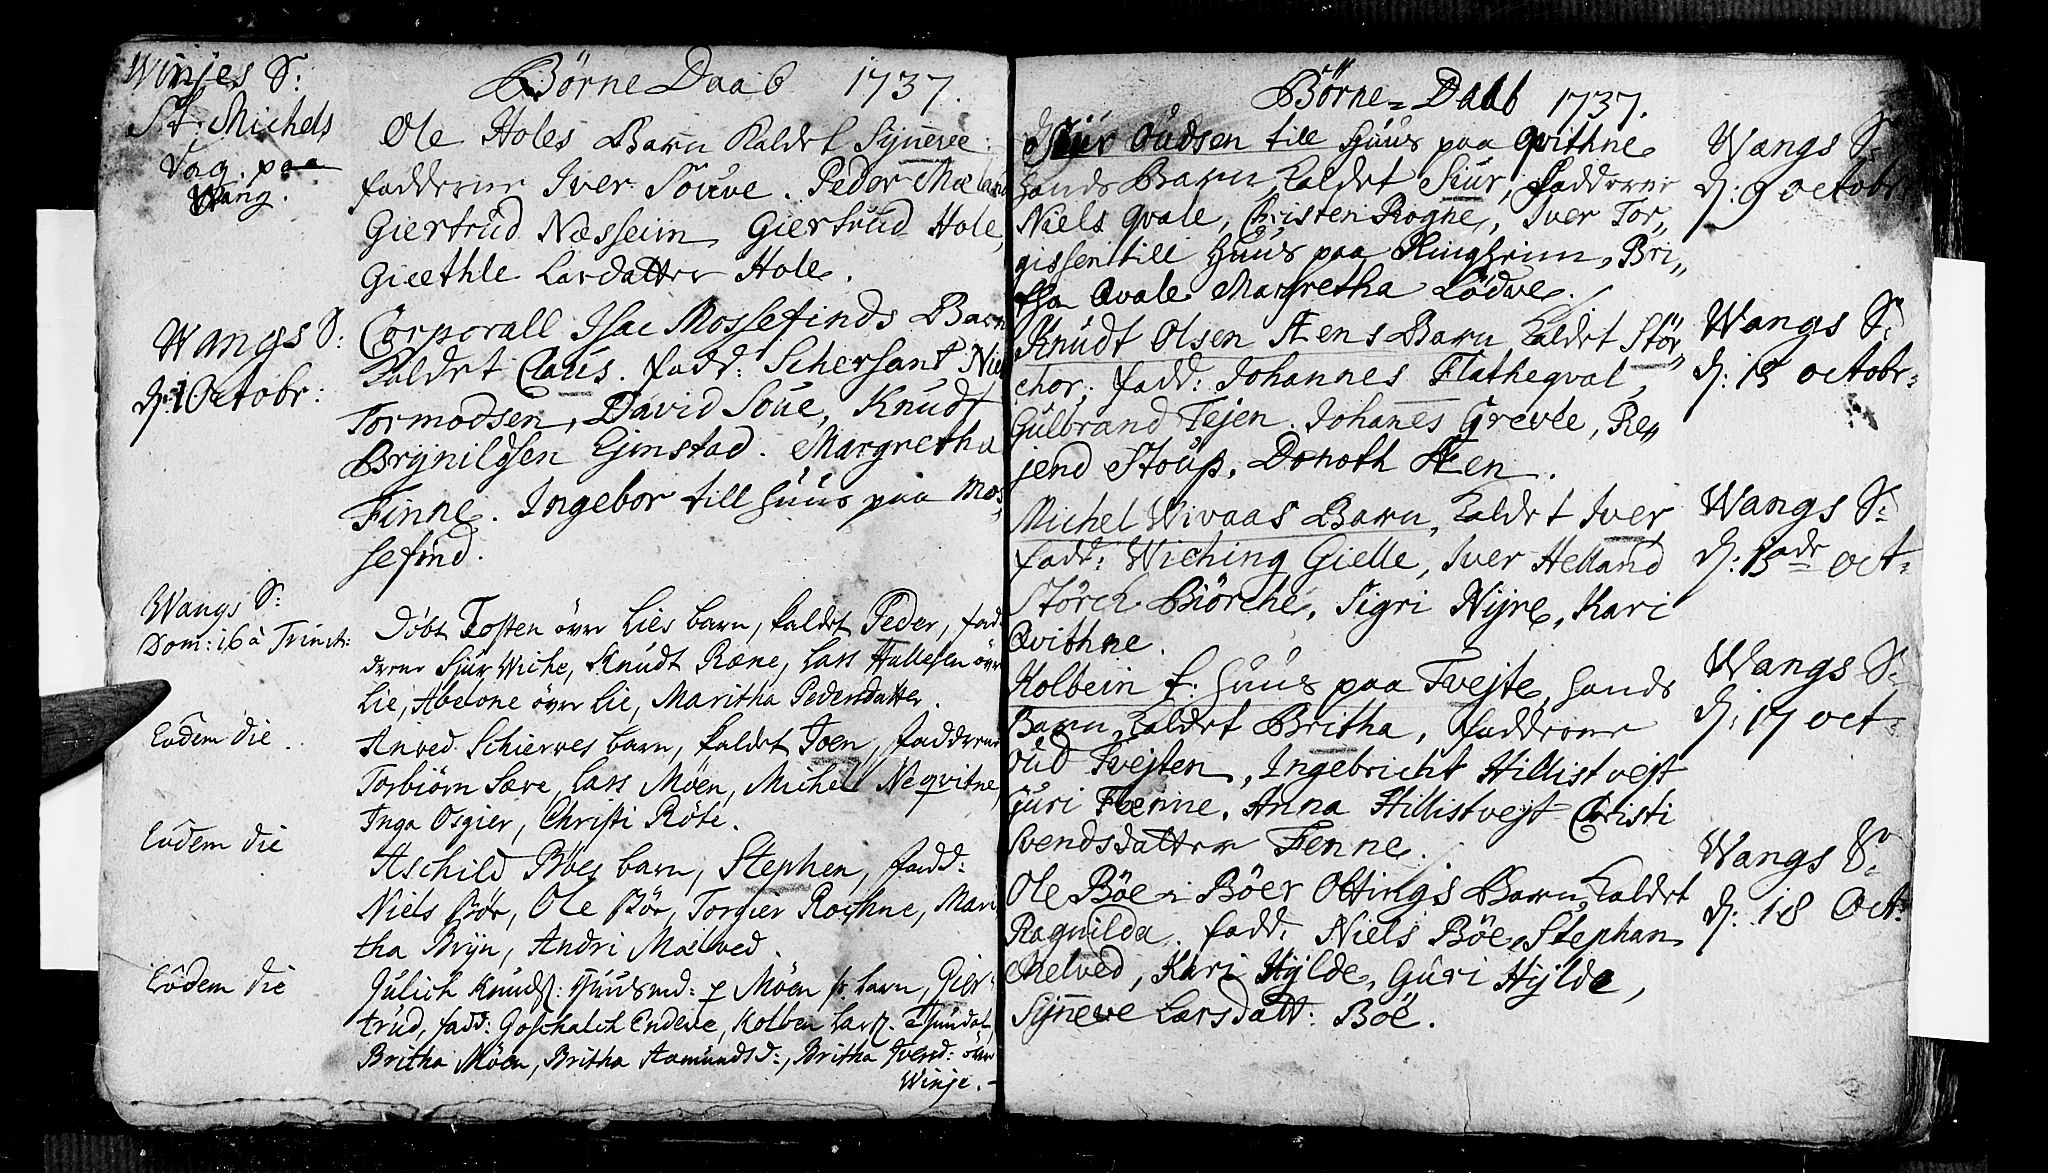 Winjes S:
St. Michels
Dag. paa
Wang.
Börne Daab 1737.
Ole Holes Barn Kaldet Synneve
fadderne Iver Souve. Peder Mæland
Giertrud Næsseim, Giertrud Hole,
Giæthle Larsdatter Hole.
Wangs S:
d: 1 Octobr:
Corporall Isac Mossefinds Barn
Kaldet Claus. fadd: Schersant Niels
Tormodsen, David Soue, Knudt
Brynildsen Gjmstad. Margretha
Finne. Ingebor till Huus paa Mos,,
sefind.
Wangs S:
Dom: 16 à Trinit:
Döbt Tosten övre Lies barn, kaldet Peder, fad-
derne Sjur Wiche, Knudt Ræne, Lars Hallesen övre
Lie, Abelone övre Lie, Maritha Pedersdatter.
Eodem die
Anved Schierves barn, kaldet Joen, fadderne
Torbiörn Sære, Lars Möen, Michel Neqvitne,
Inga Osgier, Christi Röte.
Eodem die
Aschild Böes barn, Stephen, fadd:
Niels Bör, Ole Bör, Torgier Rochne, Mari
tha Bryn, Andri Mælved.
Eodem die
Julich Knuds: Huusmd: p Möen s: barn, Gier-
trud, fadd: Goschalch Endeve, Kolben Lars:
Britha Möen, Britha Aamunds D:, Britha Iversd: övre
Winje.
Börne-Daab 1737.
Siur Oudsen till Huus paa Qvithne
hands Barn Kaldet Siur, fadderne
Niels Qvale, Christen Rogne, Iver Tor,,
gissen till Huus paa Ringheim, Bri,,
tha Qvale Margretha Lödve.
Wangs S:
d: 9 octobr:
Knudt Olsen Stens Barn Kaldet Stör,,
chor. fadd: Johannes Flatheqval,
Gulbrand Tejen. Johanes Grevle, Re,,
jend Stoup. Doroth Sten.
Wangs S:
d: 13 octobr:
Michel Wivaas Barn, Kaldet Iver,
fadd: Wiching Gielle, Iver Helland
Störch Biörche, Sigri Nyre, Kari
Qvithne.
Wangs S:
d: 13 adr oct:
Kolbein f: Huus paa Tvejte hands
Barn Kaldet Britha, fadderne
Oud Tvejten, Ingebricht Hillistvejt
Guri Fenne. Anna Hillistvejt Christi
Svendsdatter Fenne.
Wangs S:
d: 17 oct:
Ole Böe i Böer Ottings Barn Kaldet
Ragnilda. fadd: Niels Böe, Stephan
Melved, Kari Hylde, Guri Hylde,
Synneve Larsdatt: Böe.
Wangs S:
d: 18 Oct: